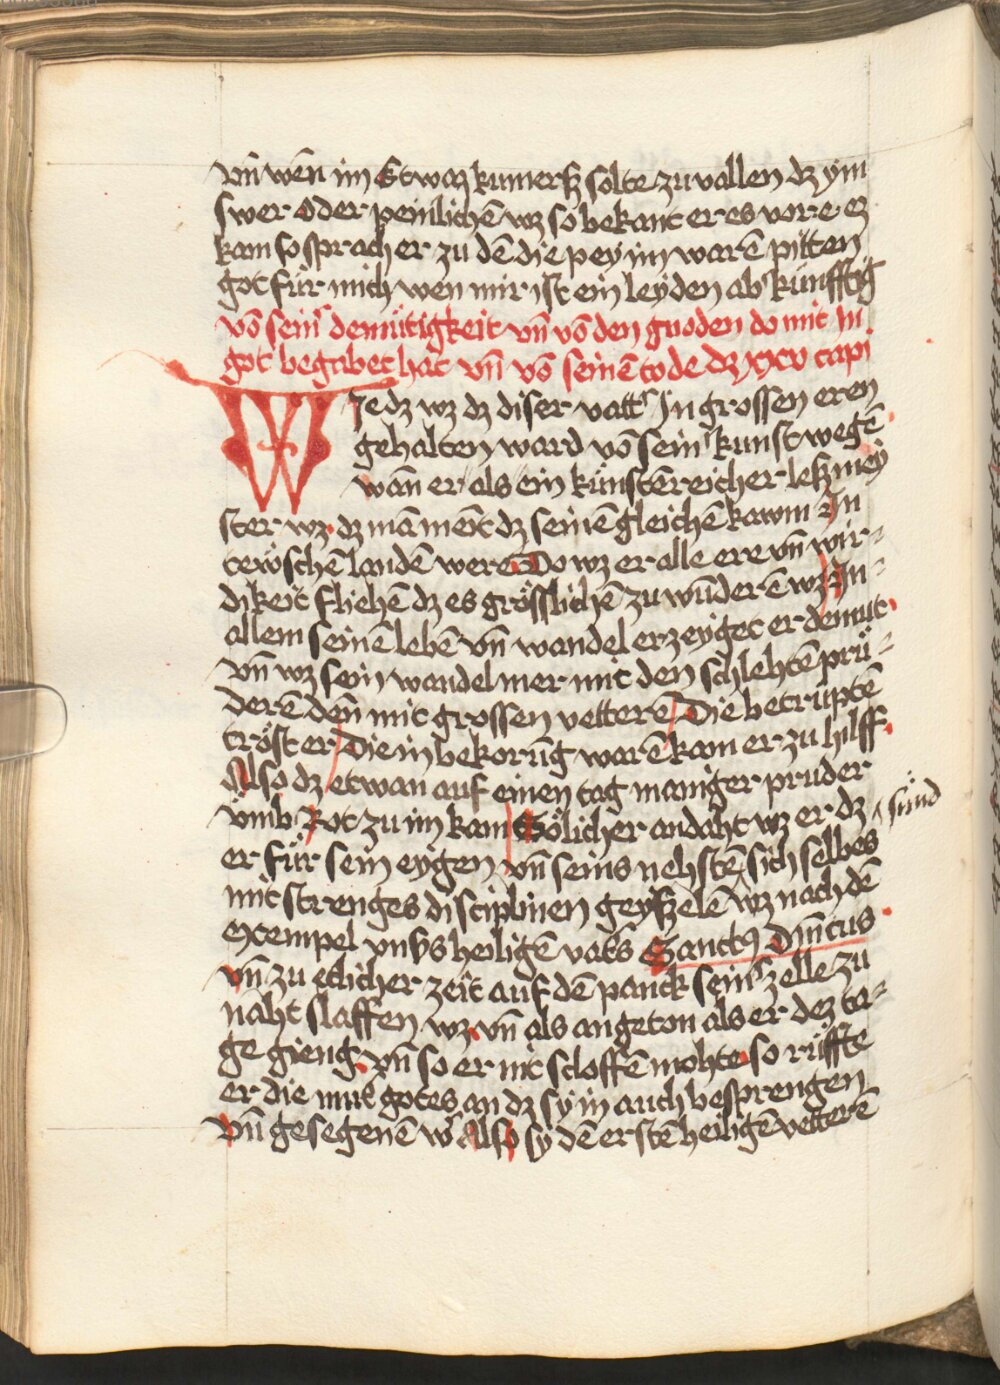 vn̄ wen̄ im Etwaz kumerß solte zu vallen dz ym
swer oder peinlichē wz so bekant er es vor e ez
kam so sprach er zu dē die pey im warē pitten
got für mich wen mir ist ein leyden ab künfftig
vō seinʳ demütigkeit vn̄ vō den gnoden do mit In
got begabet hat vn̄ vō seinē tode dz xxv capi
WJe dz wz dz diser vattʳ In grossen eren
gehalten ward vō seinʳ kunst wegē
wan̄ er als ein künstēreicher leßmey
ster wz dz mā meīt dz seinē gleichē kawm In
tewschē landē were Do wz er alle ere vn̄ wir⸗
dikeit fliehē dz es grösslichē zu wūderē wz In⸗
allem seinē lebē vn̄ wandel erzeyget er demut
vn̄ wz sein wandel mer mit den schlehtē prü⸗
derē den̄ mit grossen vetterē Die betrüptē
tröst er Die in bekorūg warē kam er zu hilff
Also dz etwan auf einen tag maniger pruder
vmb Rot zu im kam Sölicher andaht wz er dz
sünd
er für sein eygen vn̄ seins nehstē sich selbes
mit strenges disciplinen geyßelē wz nach dē
exempel vnßs heiligē vatʳs Sanctꝰ Dn̄icus
vn̄ zu etlicher zeit auf dē panck seinʳ zelle zu
naht slaffen wz vn̄ als angeton als er dez ta⸗
ge gieng vn̄ so er nit sloffē mohte so rüffte
er die mutʳ gotes an dz sy in auch besprengen
vn̄ gesegenē w Also sy dē erstē heiligē vetterē